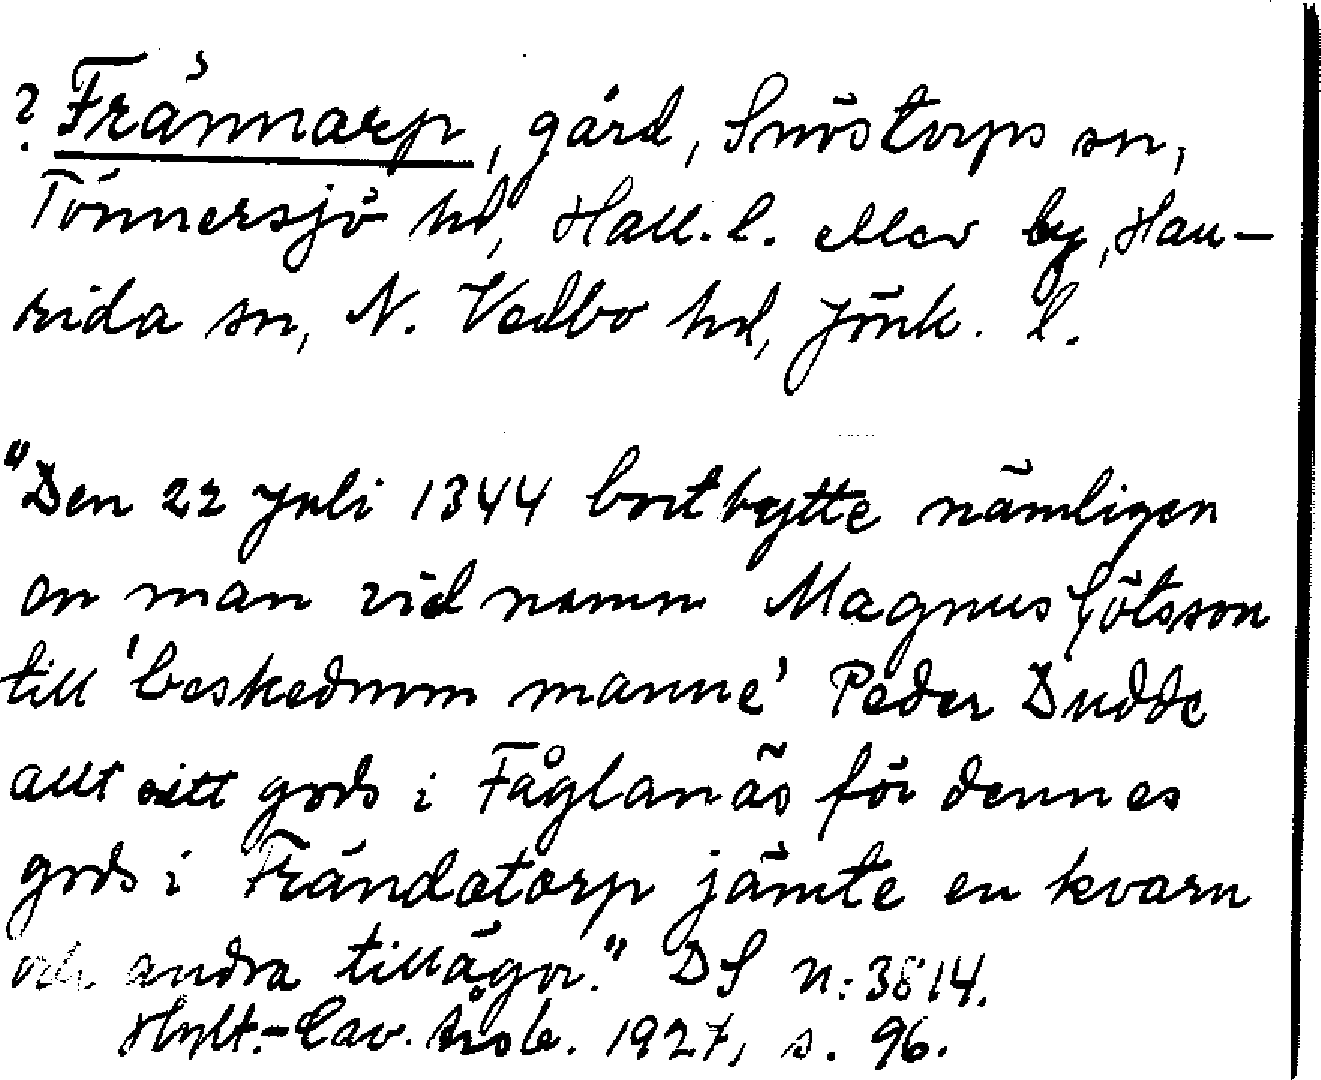 ? Frännarp, gård, Snöstorps sn,
Tönnersjö hd, Hall. l. eller by, Hau-
rida sn, N. Vedbo hd, Jönk. l.
"Den 22 juli 1344 bortbytte nämligen
en man vid namn Magnus Götsson
till 'beskednum manne' Peder Dudde
allt sitt gods i Fåglanäs för dennes
gods i Frändatorp jämte en kvarn
och andra tillägor." DS n:3814.
Hylt.-Cav. årsb. 1927, s. 96.